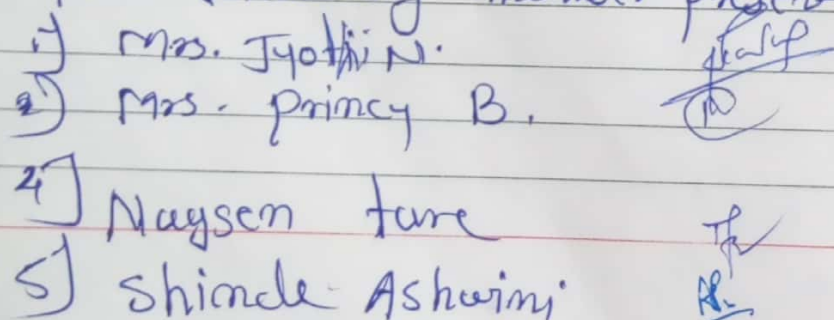 1) Mrs. Jyothi N.
2) Mrs. princy B.
4] Naysen tare
5] Shinde Ashwini